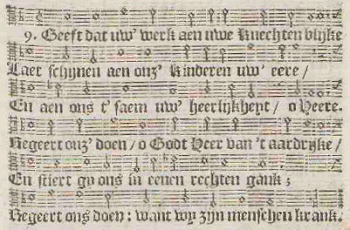 9. Geeft dat uw' werk aen uwe knechten blijke
Laet schijnen aen onz' kinderen uw' eere /
En aen ons t' saem uw' heerlijkheyt / o Heere.
Regeert onz' doen / o Godt Heer van 't aardrijke /
En stiert gy ons in eenen rechten gank ;
Regeert ons doen : want wy zijn menschen krank.